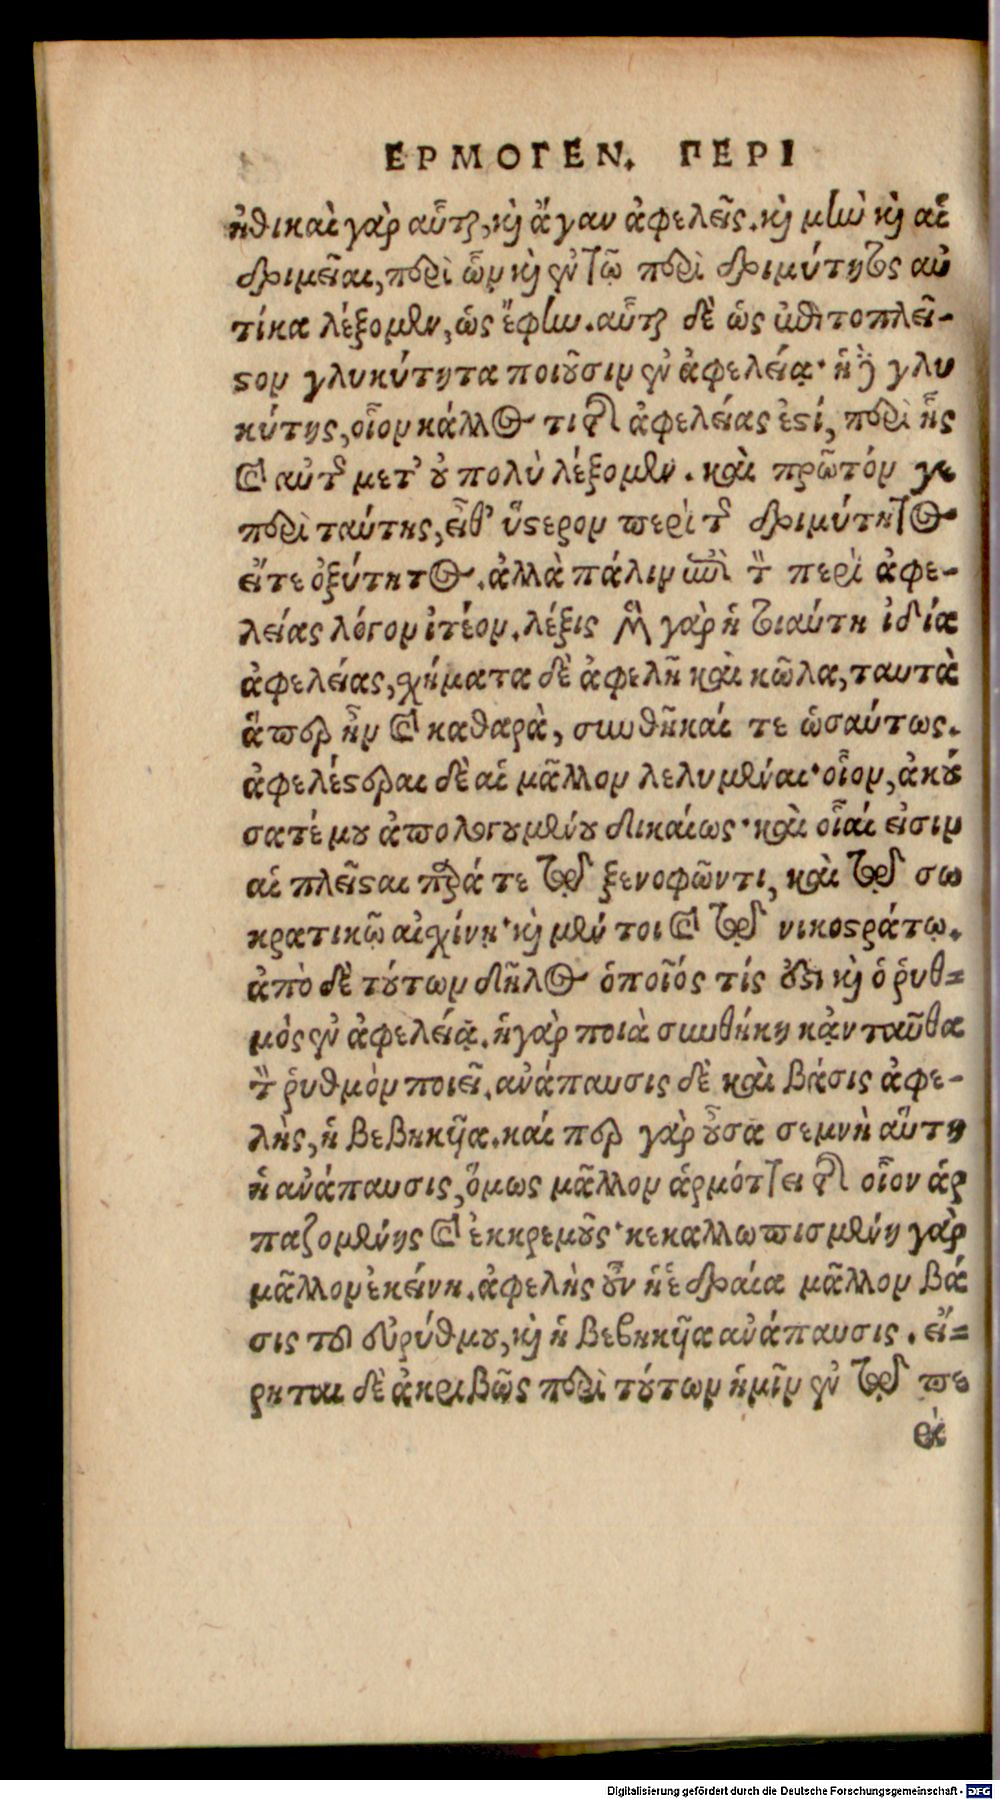 ΕΡΜΟΓΕΝ. ΠΕΡΙ
ἠθικαὶ γὰρ αὗται, καὶ ἄγαν ἀφελεῖς. καὶ μὴν καὶ αἱ
δριμεῖαι, περὶ ὧν καὶ ἐν τῷ περὶ δριμύτητος αὐ
τίκα λέξομεν, ὡς ἔφην. αὗται δὲ ὡς ἐπὶ τὸ πλεῖ-
στον γλυκύτητα ποιοῦσιν ἐν ἀφελείᾳ· ἡ δὲ γλυ
κύτης, οἷον κάλλος τι τῆς ἀφελείας ἐστί, περὶ ἧς
καὶ αὐτῆς μετ' οὐ πολὺ λέξομεν. καὶ πρῶτόν γε
περὶ ταύτης, εἶθ' ὕστερον περὶ τῆς δριμύτητος
εἴτε ὀξύτητος. ἀλλὰ πάλιν ἐπὶ τὸν περὶ ἀφε-
λείας λόγον ἰτέον. λέξις μὲν γὰρ ἡ τοιαύτη ἰδία
ἀφελείας, σχήματα δὲ ἀφελῆ καὶ κῶλα, ταυτὰ
ἅπερ ἦν καὶ καθαρὰ, συνθῆκαί τε ὡσαύτως.
ἀφελέστεραι δὲ αἱ μᾶλλον λελυμέναι· οἷον, ἀκού
σατέ μου ἀπολογουμένου δικαίως· καὶ οἷαί εἰσιν
αἱ πλεῖσται παρά τε τῷ ξενοφῶντι, καὶ τῷ σω
κρατικῷ αἰσχίνῃ· καὶ μέν τοι καὶ τῷ νικοστράτῳ.
ἀπὸ δὲ τούτων δῆλος ὁποῖός τίς ἐστι καὶ ὁ ῥυθ=
μὸς ἐν ἀφελείᾳ. ἡ γὰρ ποιὰ συνθήκη κᾀν ταῦθα
τὸν ῥυθμὸν ποιεῖ. ἀνάπαυσις δὲ καὶ βάσις ἀφε-
λὴς, ἡ βεβηκυῖα. καί περ γὰρ οὖσα σεμνὴ αὕτη
ἡ ἀνάπαυσις, ὅμως μᾶλλον ἁρμόττει τῆς οἷον ἁρ
παζομένης καὶ ἐκκρεμοῦς· κεκαλλωπισμένη γὰρ
μᾶλλον ἐκείνη. ἀφελὴς οὖν ἡ ἑδραία μᾶλλον βά
σις τοῦ εὐρύθμου, καὶ ἡ βεβηκυῖα ἀνάπαυσις. εἴ=
ρηται δὲ ἀκριβῶς περὶ τούτων ἡμῖν ἐν τῷ πε
ρὶ
Digitalisierung gefördert durch die Deutsche Forschungsgemeinschaft - DFG